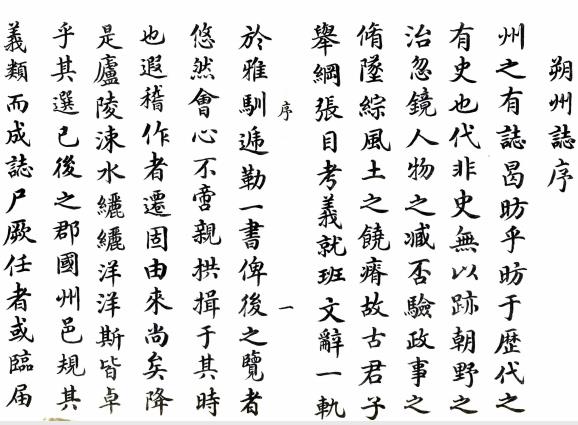 朔州誌序
州之有誌曷昉乎昉于歷代之
有史也代非史無以跡朝野之
治忽鏡人物之臧否驗政事之
脩墜綜風土之饒瘠故古君子
舉綱張目考義就班文辭一軌
序
一
於雅馴遞勒一書俾後之覽者
悠然會心不啻親拱揖于其時
也遐稽作者遷固由來尚矣降
是廬陵涑水纚纚洋洋斯皆卓
乎其選已後之郡國州邑規其
義類而成誌尸厥任者或臨屆